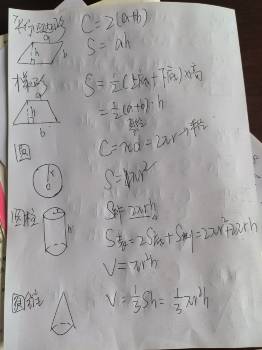 平行四边形
C=2(a+b)
a
h
b
S=ah
梯形
a
h
b
S=½(上底+下底)×高
=½(a+b)·h
圆
C=πd=2πr→半径
r
S=πr²
圆柱
S侧=2πrh
h
S表=2S底+S侧=2πr²+2πrh
V=πr²h
圆锥
V=⅓Sh=⅓πr²h